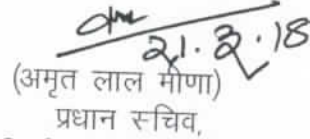 21.3.18
(अमृत लाल मीणा)
प्रधान सचिव,